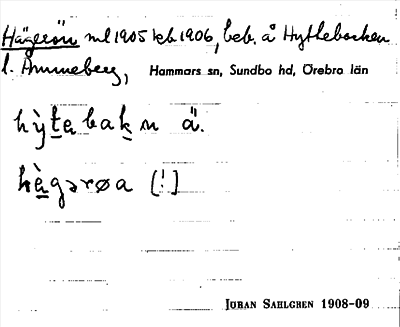 Hägerön ml 1905 kb 1906, beb. å Hyttebacken
l. Ammeberg, Hammars sn, Sundbo hd, Örebro län
hỳtabakn ä.
hὰgərøa [!]
JOHAN SAHLGREN 1908-09